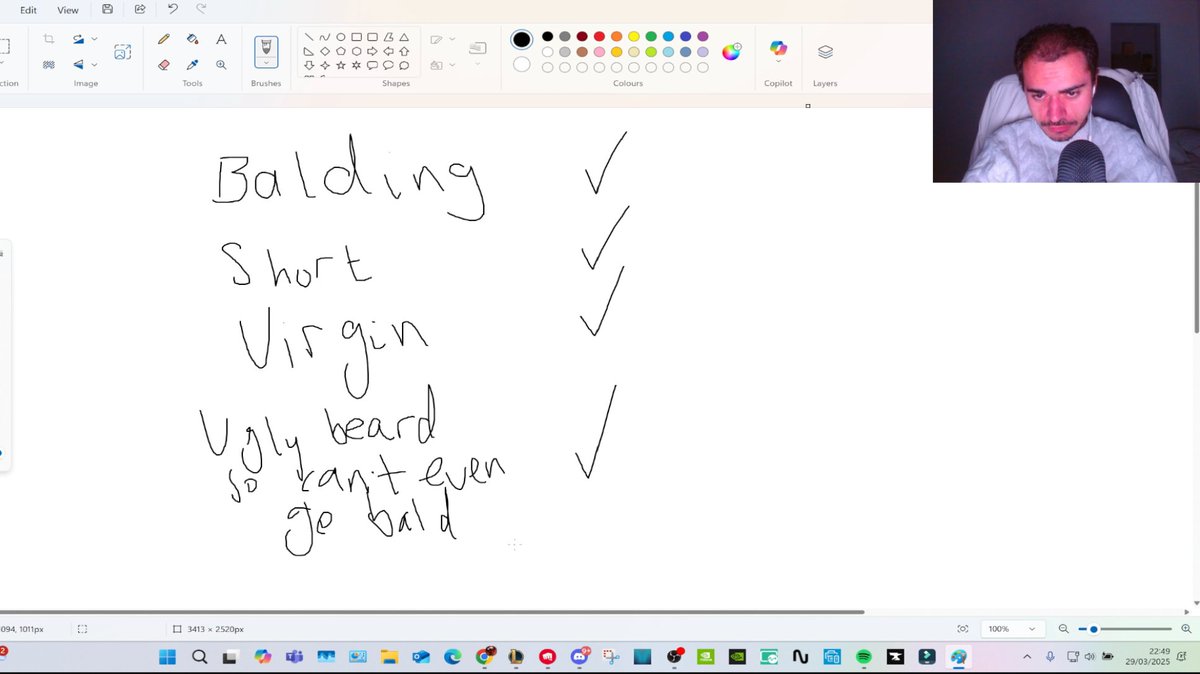 Edit View
ction
Image
Tools
Brushes
Shapes
Colours
Copilot
Layers
A
Balding
Short
Virgin
Ugly beard
so can't even
go bald
094, 1011px
3413 × 2520px
100%
22:49
29/03/2025